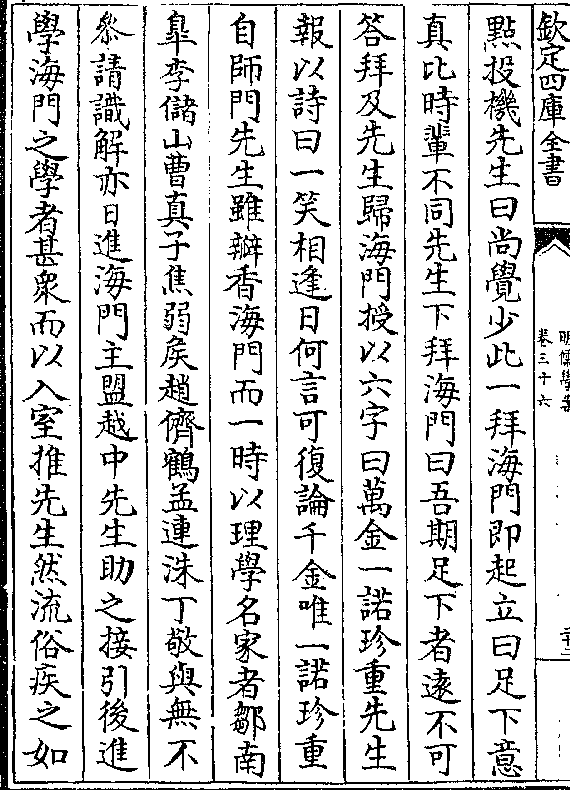 欽定四庫全書
明儒學案
卷三十六
點投機先生曰尚覺少此一拜海門即起立曰足下意
真比時輩不同先生下拜海門曰吾期足下者遠不可
答拜及先生歸海門授以六字曰萬金一諾珍重先生
報以詩曰一笑相逢日何言可復論千金唯一諾珍重
自師門先生雖瓣香海門而一時以理學名家者鄒南
臯李儲山曹真予焦弱矦趙儕鶴孟連洙丁敬與無不
叅請識解亦日進海門主盟越中先生助之接引後進
學海門之學者甚衆而以入室推先生然流俗疾之如